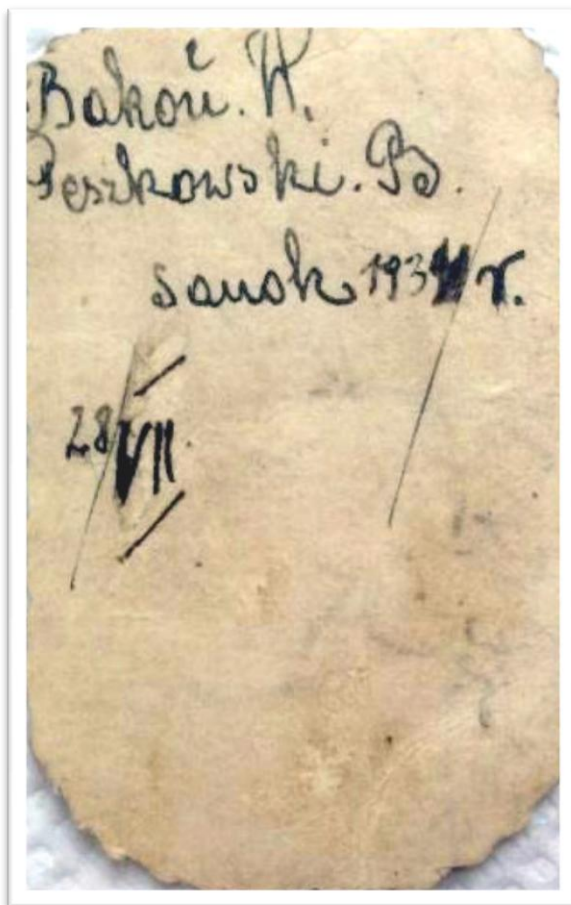 Bakoń. W.
Peszkowski. B.
Sanok 1934 r.
28/VII